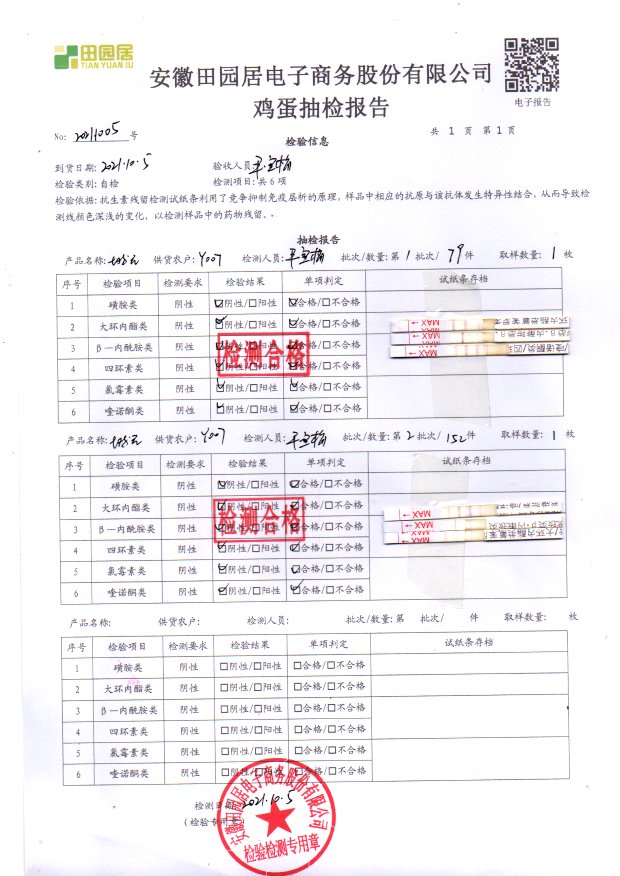 田园居
TIAN YUAN JU
安徽田园居电子商务股份有限公司
鸡蛋抽检报告
电子报告
No: 20211005 号
共 1 页 第 1 页
检验信息
到货日期: 2021.10.5 验收人员:
检验类别: 自检 检测项目: 共 6 项
检验依据: 抗生素残留检测试纸条利用了竞争抑制免疫层析的原理，样品中相应的抗原与该抗体发生特异性结合，从而导致检
测线颜色深浅的变化，以检测样品中的药物残留。。
抽检报告
产品名称: 供货农户: Y007 检测人员: 批次/数量: 第 1 批次/ 79 件 取样数量: 1 枚
序号 检验项目 检测要求 检验结果 单项判定 试纸条存档
1 磺胺类 阴性 ☑阴性/□阳性 ☑合格/□不合格
2 大环内酯类 阴性 ☑阴性/□阳性 ☑合格/□不合格
3 β－内酰胺类 阴性 ☑阴性/□阳性 ☑合格/□不合格
4 四环素类 阴性 ☑阴性/□阳性 ☑合格/□不合格
5 氯霉素类 阴性 ☑阴性/□阳性 ☑合格/□不合格
6 喹诺酮类 阴性 ☑阴性/□阳性 ☑合格/□不合格
检测合格
MAX
MAX
MAX
产品名称: 供货农户: Y007 检测人员: 批次/数量: 第 2 批次/ 152 件 取样数量: 1 枚
序号 检验项目 检测要求 检验结果 单项判定 试纸条存档
1 磺胺类 阴性 ☑阴性/□阳性 ☑合格/□不合格
2 大环内酯类 阴性 ☑阴性/□阳性 ☑合格/□不合格
3 β－内酰胺类 阴性 ☑阴性/□阳性 ☑合格/□不合格
4 四环素类 阴性 ☑阴性/□阳性 ☑合格/□不合格
5 氯霉素类 阴性 ☑阴性/□阳性 ☑合格/□不合格
6 喹诺酮类 阴性 ☑阴性/□阳性 ☑合格/□不合格
检测合格
MAX
MAX
MAX
产品名称: 供货农户: 检测人员: 批次/数量: 第 批次/ 件 取样数量: 枚
序号 检验项目 检测要求 检验结果 单项判定 试纸条存档
1 磺胺类 阴性 □阴性/□阳性 □合格/□不合格
2 大环内酯类 阴性 □阴性/□阳性 □合格/□不合格
3 β－内酰胺类 阴性 □阴性/□阳性 □合格/□不合格
4 四环素类 阴性 □阴性/□阳性 □合格/□不合格
5 氯霉素类 阴性 □阴性/□阳性 □合格/□不合格
6 喹诺酮类 阴性 □阴性/□阳性 □合格/□不合格
检测日期: 2021.10.5
(检验专用章)
安徽田园居电子商务股份有限公司
检验检测专用章